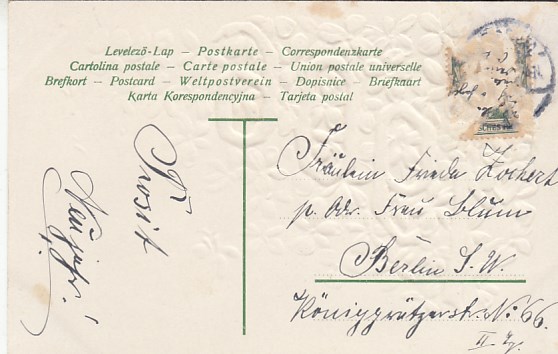 Levelező-Lap – Postkarte – Correspondenzkarte
Cartolina postale – Carte postale – Union postale universelle
Brefkort – Postcard – Weltpostverein – Dopisnice – Briefkaart
Karta Korespondencyjna – Tarjeta postal
Prosit
Neujahr!
Fräulein Frieda Zochert
p. Adr. Frau Blum
Berlin S. W.
Königgrätzerstr. No. 66.
II. Tr.